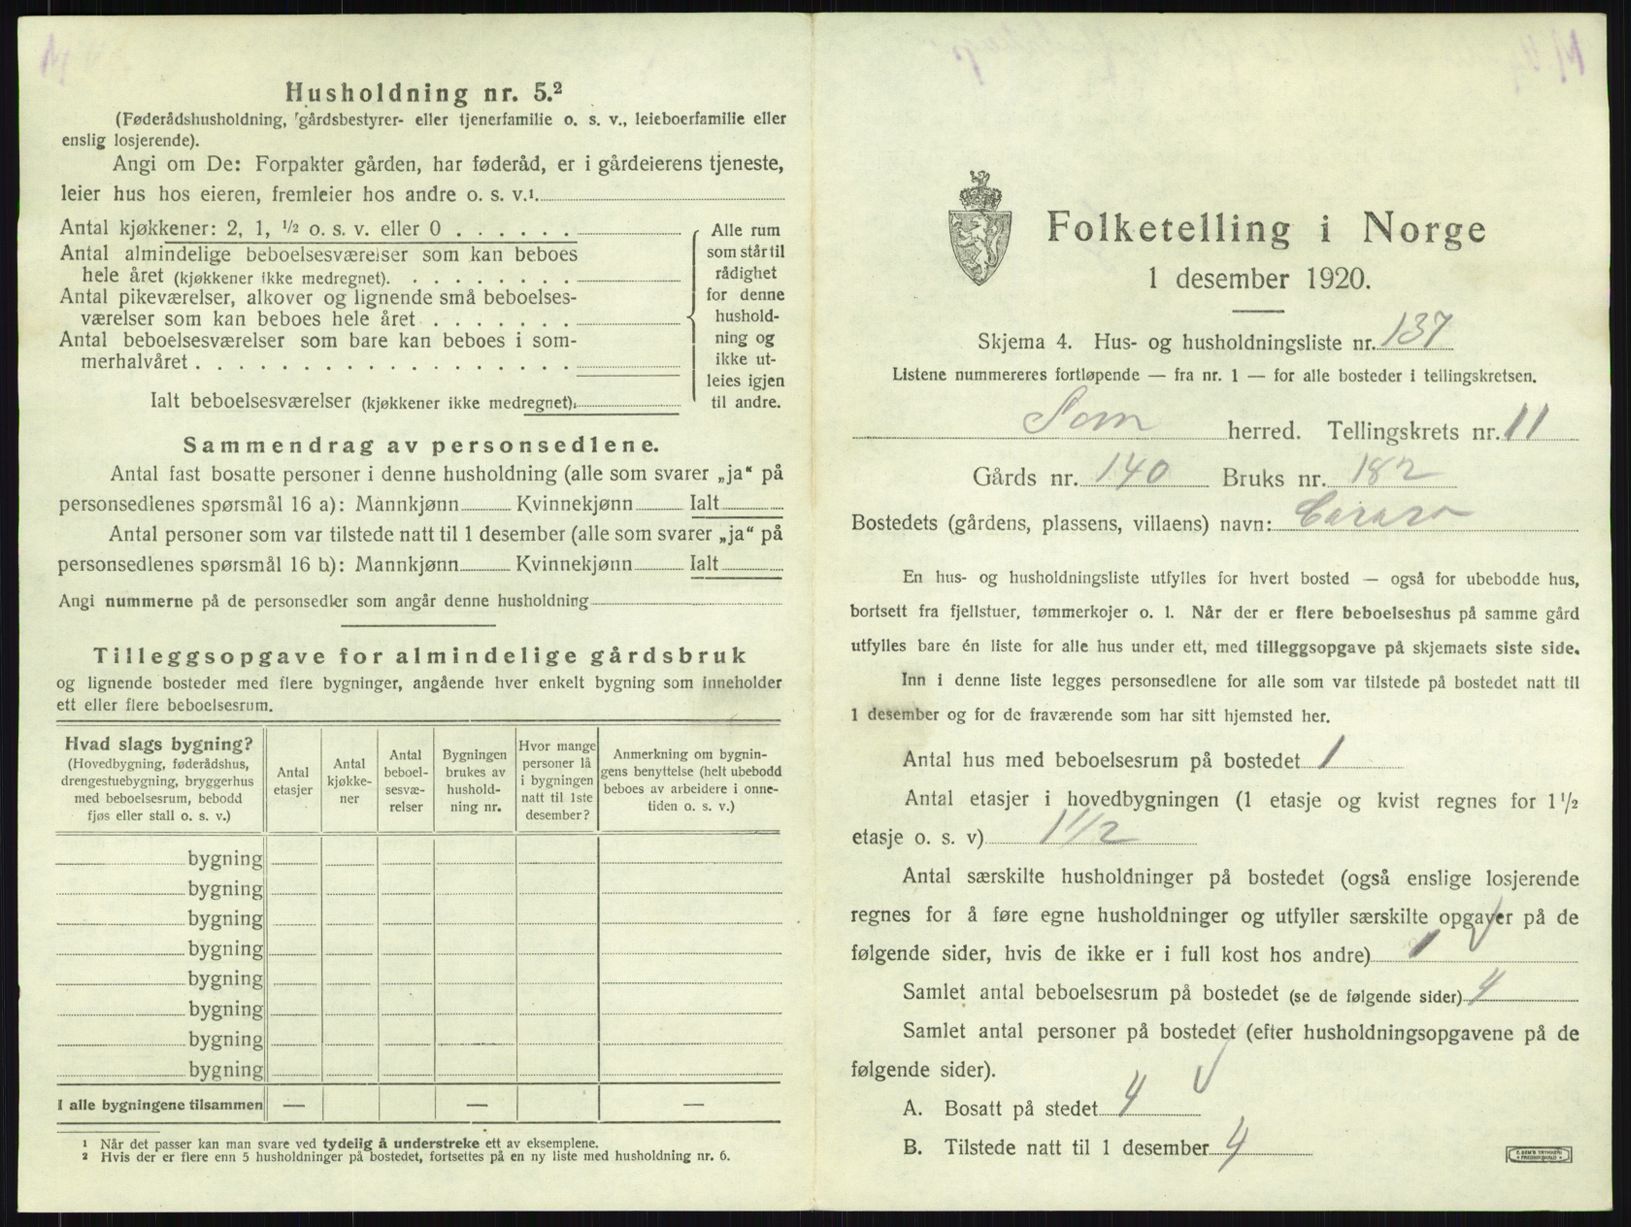 Husholdning nr. 5.²
(Føderådshusholdning, gårdsbestyrer- eller tjenerfamilie o. s. v., leieboerfamilie eller
enslig losjerende).
Angi om De: Forpakter gården, har føderåd, er i gårdeierens tjeneste,
leier hus hos eieren, fremleier hos andre o. s. v.¹
Antal kjøkkener: 2, 1, ½ o. s. v. eller 0
Antal almindelige beboelsesværelser som kan beboes
hele året (kjøkkener ikke medregnet).
Antal pikeværelser, alkover og lignende små beboelses-
værelser som kan beboes hele året
Antal beboelsesværelser som bare kan beboes i som-
merhalvåret
Ialt beboelsesværelser (kjøkkener ikke medregnet)
Alle rum
som står til
rådighet
for denne
hushold-
ning og
ikke ut-
leies igjen
til andre.
Sammendrag av personsedlene.
Antal fast bosatte personer i denne husholdning (alle som svarer „ja“ på
personsedlenes spørsmål 16 a): Mannkjønn Kvinnekjønn Ialt
Antal personer som var tilstede natt til 1 desember (alle som svarer „ja“ på
personsedlenes spørsmål 16 b): Mannkjønn Kvinnekjønn Ialt
Angi nummerne på de personsedler som angår denne husholdning
Tilleggsopgave for almindelige gårdsbruk
og lignende bosteder med flere bygninger, angående hver enkelt bygning som inneholder
ett eller flere beboelsesrum.
Hvad slags bygning?
(Hovedbygning, føderådshus,
drengestuebygning, bryggerhus
med beboelsesrum, bebodd
fjøs eller stall o. s. v.)
Antal
etasjer
Antal
kjøkke-
ner
Antal
beboel-
sesvæ-
relser
Bygningen
brukes av
hushold-
ning nr.
Hvor mange
personer lå
i bygningen
natt til 1ste
desember?
Anmerkning om bygnin-
gens benyttelse (helt ubebodd
beboes av arbeidere i onne-
tiden o. s. v.)
bygning
bygning
bygning
bygning
bygning
bygning
bygning
bygning
I alle bygningene tilsammen — — —
¹ Når det passer kan man svare ved tydelig å understreke ett av eksemplene.
² Hvis der er flere enn 5 husholdninger på bostedet, fortsettes på en ny liste med husholdning nr. 6.
Folketelling i Norge
1 desember 1920.
Skjema 4. Hus- og husholdningsliste nr. 137
Listene nummereres fortløpende — fra nr. 1 — for alle bosteder i tellingskretsen.
Sem herred. Tellingskrets nr. 11
Gårds nr. 140 Bruks nr. 182
Bostedets (gårdens, plassens, villaens) navn: Carara
En hus- og husholdningsliste utfylles for hvert bosted — også for ubebodde hus,
bortsett fra fjellstuer, tømmerkojer o. l. Når der er flere beboelseshus på samme gård
utfylles bare én liste for alle hus under ett, med tilleggsopgave på skjemaets siste side.
Inn i denne liste legges personsedlene for alle som var tilstede på bostedet natt til
1 desember og for de fraværende som har sitt hjemsted her.
Antal hus med beboelsesrum på bostedet 1
Antal etasjer i hovedbygningen (1 etasje og kvist regnes for 1½
etasje o. s. v) 1 1/2
Antal særskilte husholdninger på bostedet (også enslige losjerende
regnes for å føre egne husholdninger og utfyller særskilte opgaver på de
følgende sider, hvis de ikke er i full kost hos andre) 1
Samlet antal beboelsesrum på bostedet (se de følgende sider) 4
Samlet antal personer på bostedet (efter husholdningsopgavene på de
følgende sider).
A. Bosatt på stedet 4
B. Tilstede natt til 1 desember 4